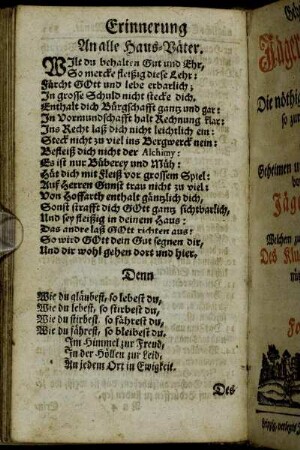 Erinnerung
An alle Haus-Väter.
Wilt du behalten Gut und Ehr,
So mercke fleißig diese Lehr:
Fürcht GOtt und lebe erbarlich;
In grosse Schuld nicht stecke dich.
Enthalt dich Bürgschafft gantz und gar:
In Vormundschafft halt Rechnung klar:
Ins Recht laß dich nicht leichtlich ein:
Steck nicht zu viel ins Bergwerck nein:
Befleiß dich nicht der Alchimy:
Es ist nur Büberey und Müh:
Hüt dich mit Fleiß vor grossem Spiel:
Auf Herren Gunst trau nicht zu viel:
Von Hoffarth enthalt gäntzlich dich,
Sonst strafft dich GOtt gantz sichtbarlich,
Und sey fleißig in deinem Haus:
Das andre laß GOtt richten aus:
So wird GOtt dein Gut segnen dir,
Und dir wohl gehen dort und hier,
Denn
Wie du gläubest, so lebest du,
Wie du lebest, so stirbest du,
Wie du stirbest, so fährest du,
Wie du fährest, so bleibest du.
Im Himmel zur Freud,
In der Höllen zur Leid,
An jedem Ort in Ewigkeit.
Des
Jäger
Die nöthig
so zur
Geheimen
Jäge
Welchen
Des